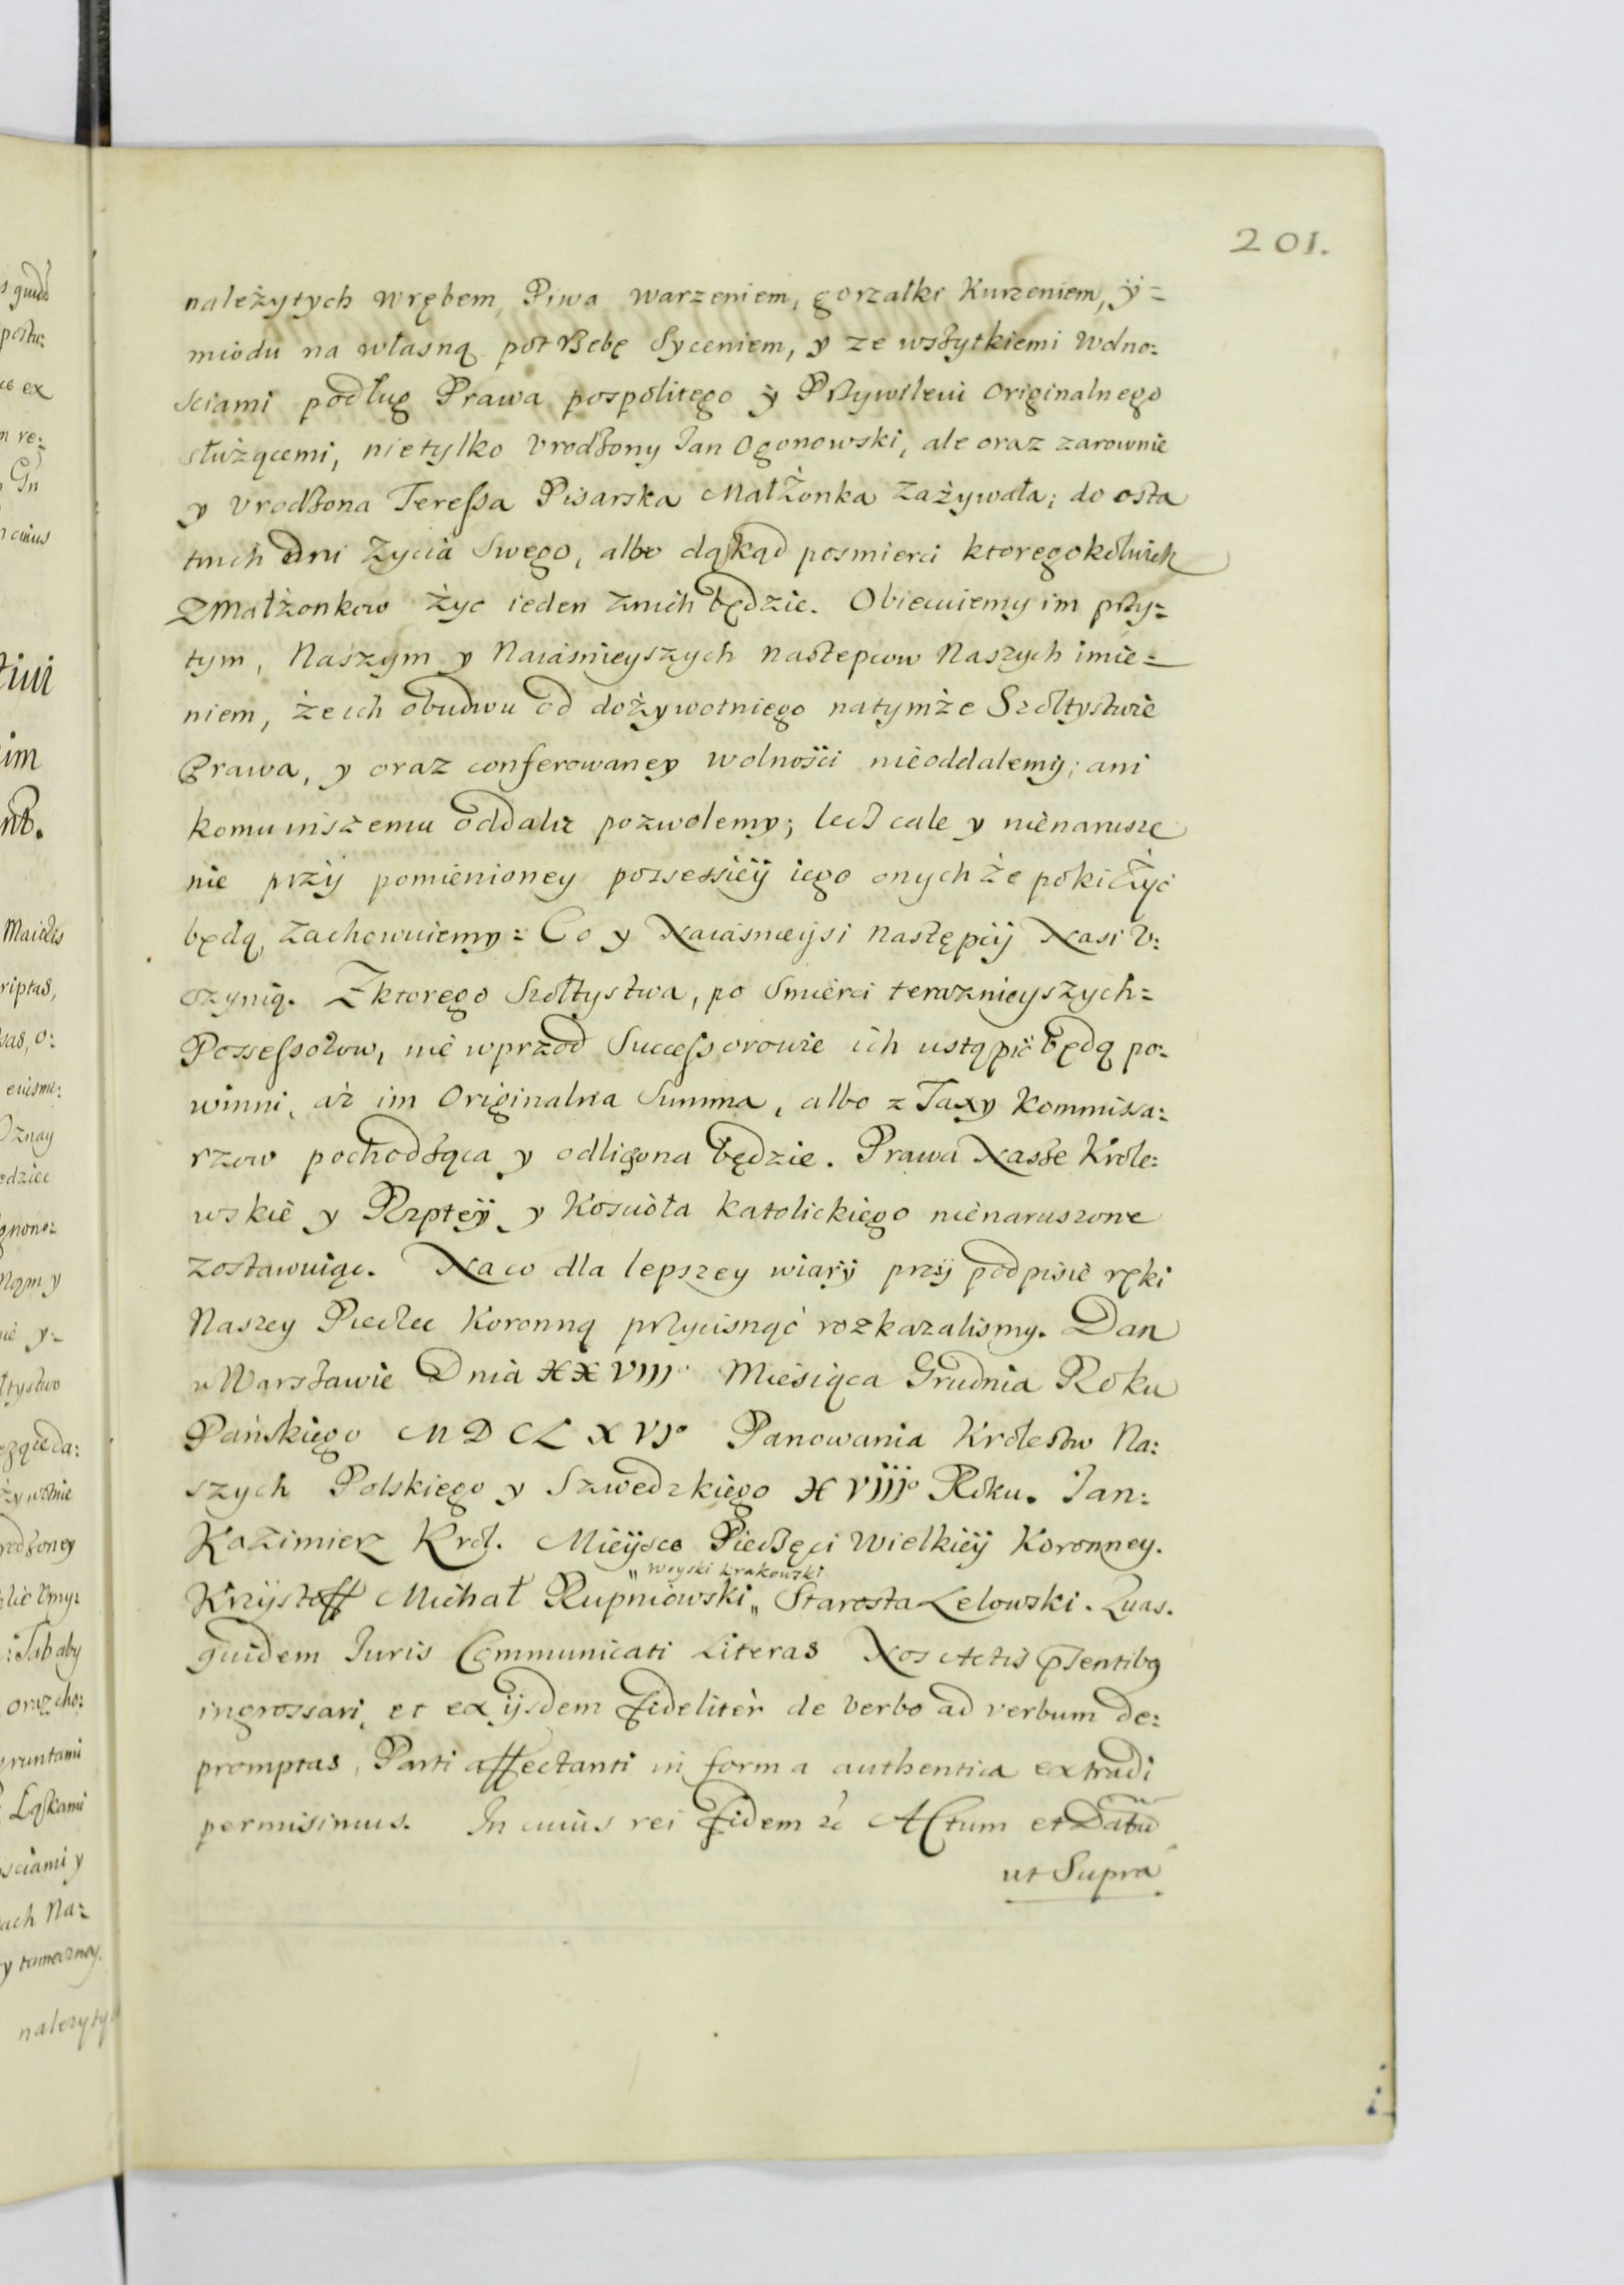 201.
należytych wrębem, Piwa warzeniem, gorzałki Kurzeniem, ÿ=
miodu na własną potrzebę Syceniem, y ze wszytkiemi Wolno:
sciami podług Prawa pospolitego ÿ Przywileiu originalnego
służącemi, nietylko Vrodzony Jan Ogonowski, ale oraz zarownie
y Vrodzona Teressa Pisarska Małżonka zażywała; do osta
tnich dni Życia Swego, albo dąkąd posmierci ktoregokolwiek
z Małżonkow życ ieden znich będzie. Obiecuiemy im przy:
tym, Naszym y Naiásnieyszych nastepcow Naszych imie=
niem, że ich obudwu od dożywotniego natymże Szołtystwie
Prawa, y oraz conferowaney wolności nieoddalemy; ani
komu inszemu oddalić pozwolemy; lecz cale y nienarusze
nie przÿ pomienioney possessieÿ iego onychże poki Żyć
będą, zachowuiemy: Co y Naiásnieÿsi następcÿ Nasi V:
czynią. Z ktorego Szołtystwa, po Smierci teraznieyszych=
Possessorow, nie wprzod Successorowie ich ustąpić będą po:
winni, aż im Originalna Summa, albo z Taxy Kommissa:
rzow pochodząca y odligona będzie. Prawa Nasze Krole:
wskie y Rzpteÿ y Kosciоła katolickiego nienaruszone
zostawuiąc. Na co dla lepszey wiarÿ przÿ podpisie ręki
Naszey Pieczec Koronną przycisnąć rozkazalismy. Dan
w Warszawie Dnia XXVIIIo Miesiąca Grudnia Roku
Pańskiego MDCLXVIo Panowania Krolestw Na:
szych Polskiego y Szwedzkiego XVIIIo Roku. Jan:
Kazimierz Krol. Mieÿsce Pieczęci Wielkieÿ Koronney.
„ Woyski Krakowski
Krzÿstoff Michał Rupniowski „ Starosta Lelowski. Quas.
quidem Juris Communicati Literas Nos Actis pntibq
ingrossari, et ex ijsdem fideliter de verbo ad verbum de:
promptas, Parti affectanti in forma authentica extradi
permisimus. In cuius rei fidem &c Actum et Datū
ut Supra